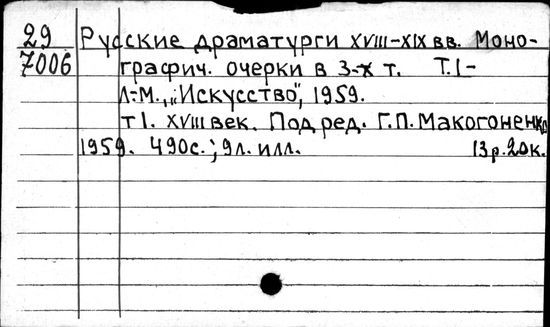 29 Русские драматурги XVIII–XIX вв. Моно-
7006 графич. очерки в 3-х т. Т. I–
Л.-М., „Искусство", 1959.
т I. XVIII век. Под ред. Г.П. Макогоненко
1959. 490с.; 9л. илл. 13р.20к.